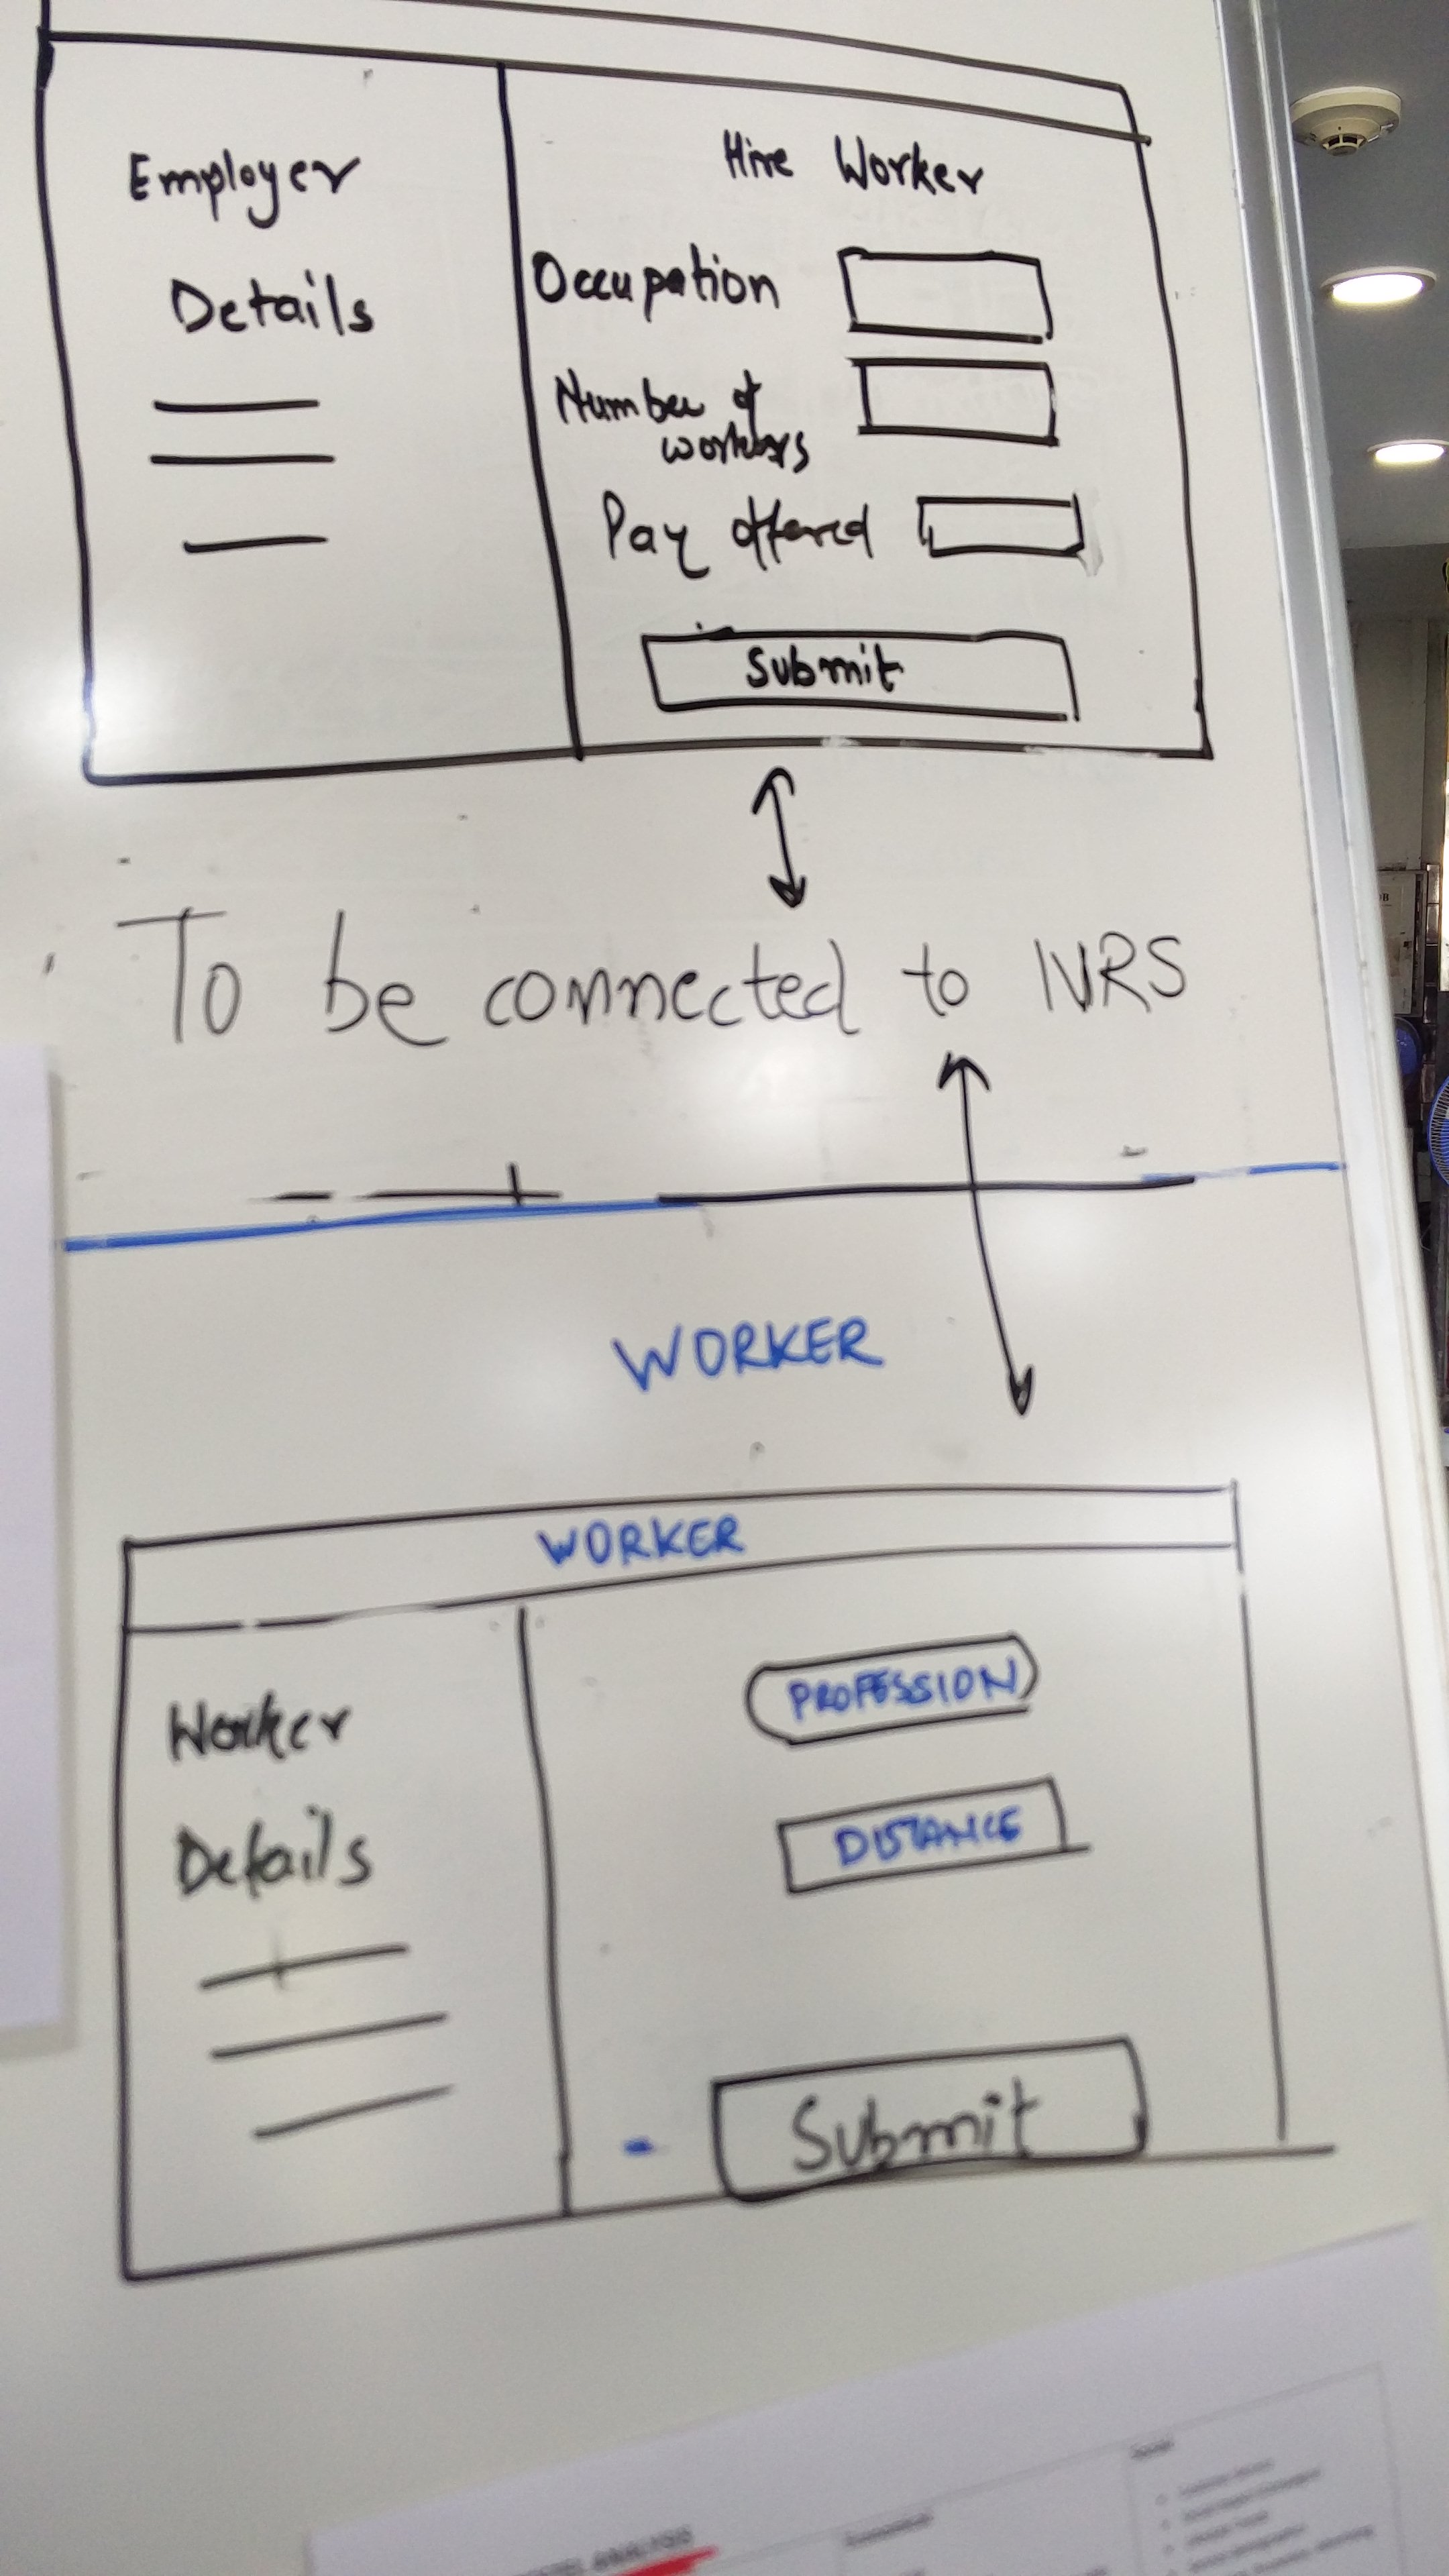 Employer
Details
Hire Worker
Occupation
Number of
workers
Pay offered
Submit
To be connected to IVRS
WORKER
WORKER
Worker
Details
PROFESSION
DISTANCE
Submit
ANALYSIS